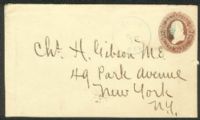 Chs. H. Gibson M.E.
49 Park Avenue
New York
N.Y.